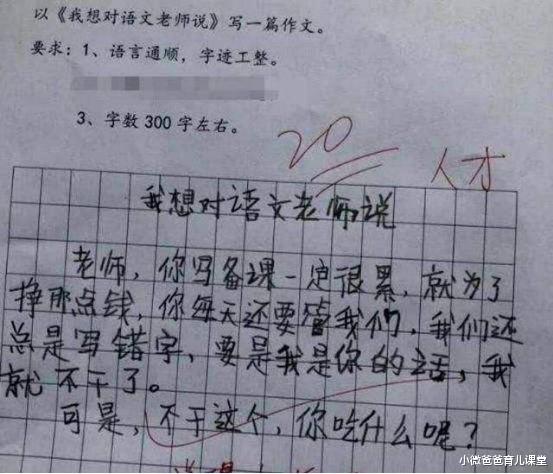 以《我想对语文老师说》写一篇作文。
要求：1、语言通顺，字迹工整。
3、字数300字左右。
20
人才
我想对语文老师说
老师，你写备课一定很累，就为了
挣那点钱，你每天还要管我们，我们还
总是写错字，要是我是你的话，我
就不干了。
可是，不干这个，你吃什么呢？
小微爸爸育儿课堂